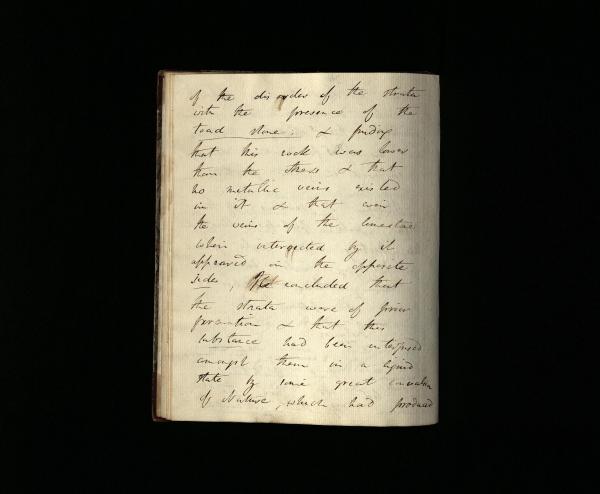 of the disorder of the strata
with the presence of the
toad stone; & finding
that this rock was lower
than the others & that
no metallic veins existed
in it & that even
the veins of the limestone
when intersected by it
appeared on the opposite
side, He concluded that
the strata were of prior
formation & that this
substance had been interposed
amongst them in a liquid
state by some great convulsion
of Nature, which had produced